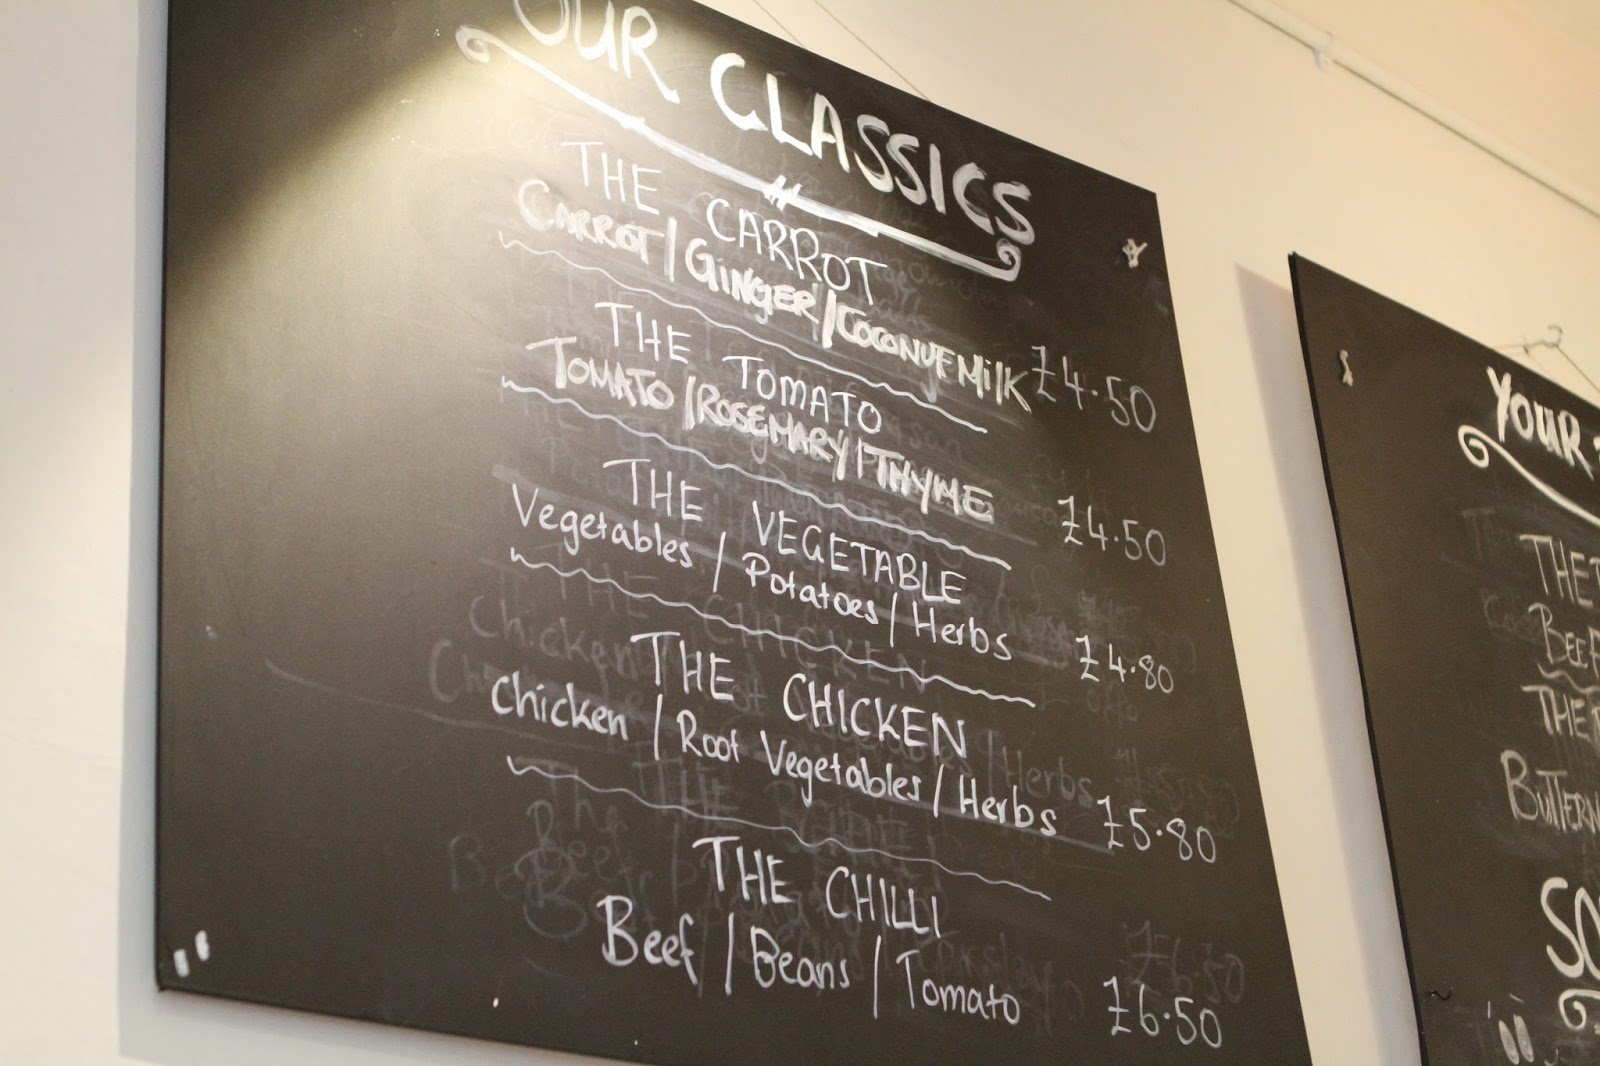 OUR CLASSICS
THE CARROT
CARROT / GINGER / COCONUT MILK £4.50
THE TOMATO
TOMATO / ROSEMARY / THYME £4.50
THE VEGETABLE
Vegetables / Potatoes / Herbs £4.80
THE CHICKEN
Chicken / Root Vegetables / Herbs £5.80
THE CHILLI
Beef / Beans / Tomato £6.50
YOUR
THE
THE